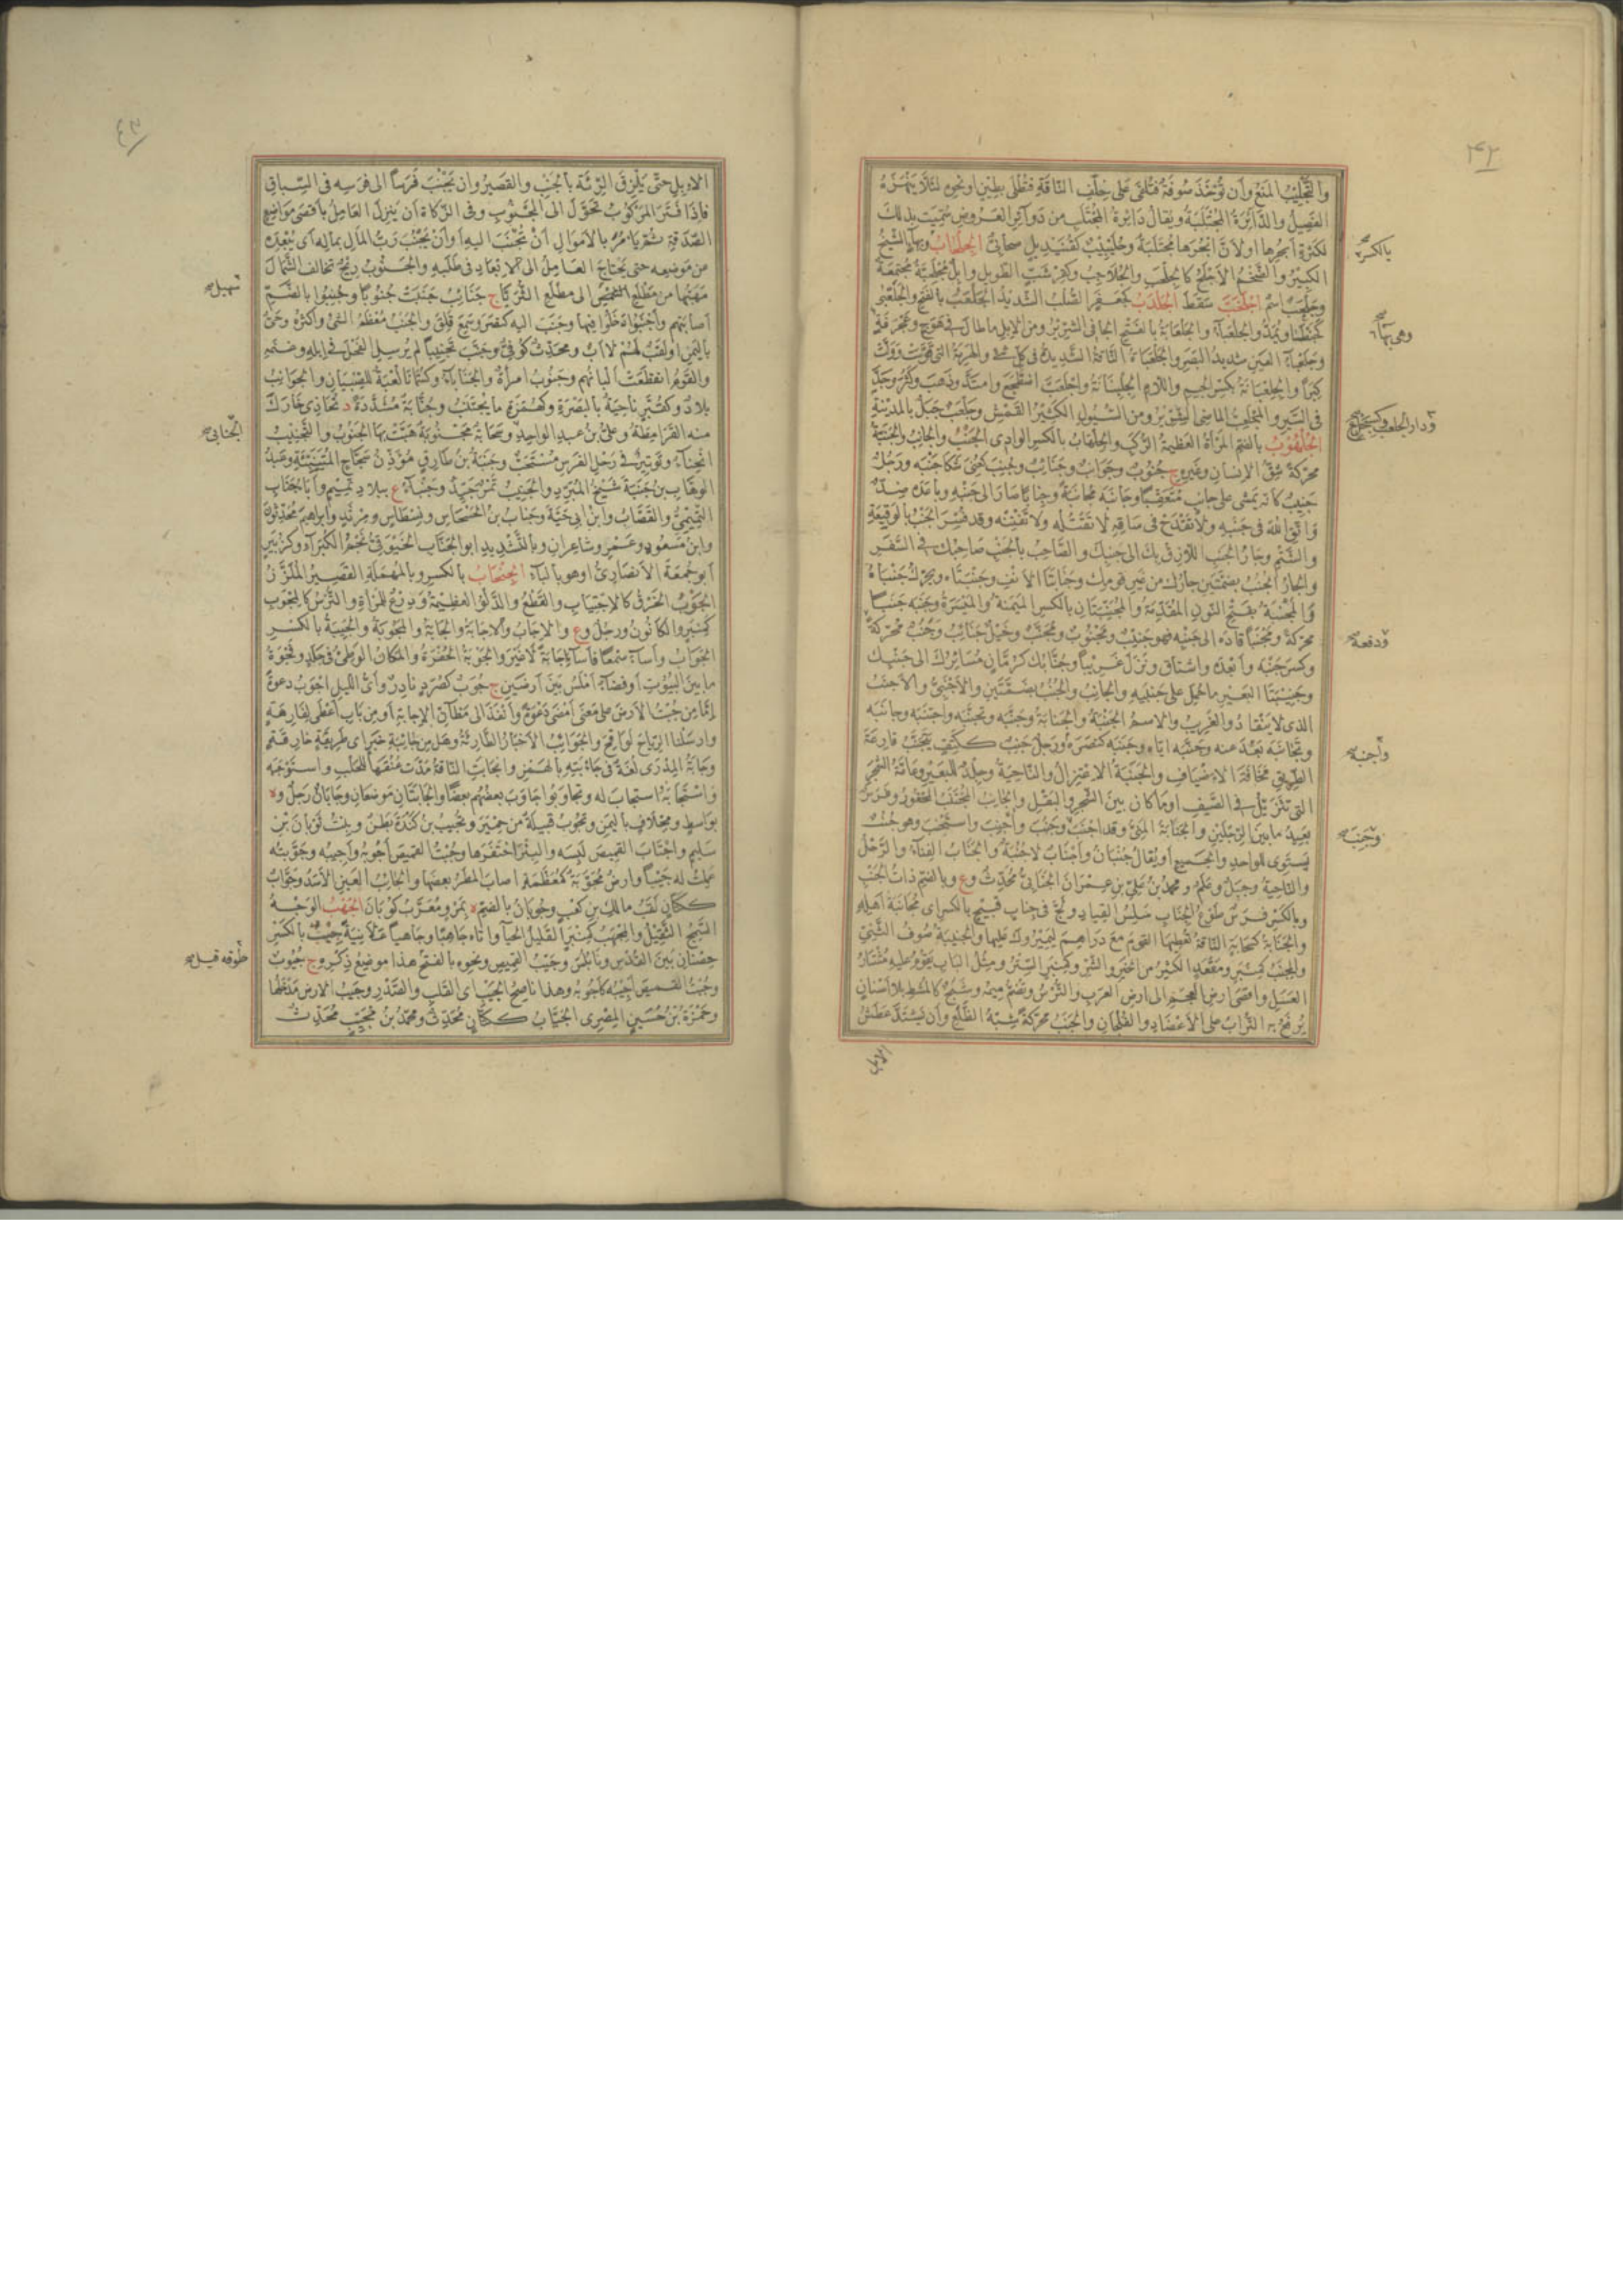 ٤٢
والتجليب المنع وأن تؤخذ صوفة فتلقى على خلف الناقة فتطلى بطين او نحوه لئلا ينهزه
الفصيل والدائرة المجتلبة ويقال دائرة المجتلب من دوآئر العروض سميت بذلك
لكثرة ابحرها او لأن ابحرها مجتلبة وجليبيب كقنيديل صحابي الجلحاب وبهآ الشيخ
الكبير والضخم الأجلح كالجلحب والجلاحب وكقرشب الطويل وابل مجلحبة مجتمعة
وجلحب اسم اجلخب سقط الجلدب كجعفر الصلب الشديد الجلعب بالفتح والجلعبى
والجلعبآء والجلعابة بالفتح الجافى الشرير ومن الابل ماطال فى هوج وعجرفة
وجلعبآة العين شديد البصر والجلعباة الناقة الشديدة فى كل شئ والهرمة التى قوّست وولّت
كبرا والجلعبانة بكسر الجيم واللام الجلبانة واجلعب اضطجع وامتد وذهب وكثر وجدّ
فى السير والمجلعب الماضى الشرير ومن السيول الكثير القمش وجلعب جبل بالمدينة
الجلهوب بالضم المرأة العظيمة الركب والجلهاب بالكسر الوادى الجنب والجانب والجنبة
محركة شق الإنسان وغيره ج جنوب وجوانب وجنائب وجنب كعنى شكا جنبه ورجل
جنيب كأنه يمشى على جانب متعقبا وجانبه مجانبة وجنابا صار الى جنبه وباعده ضد
واتق الله فى جنبه ولا تقدح فى ساقه لا تقتله ولا تفتنه وقد فسر الجنب بالوقيعة
والشتم وجار الجنب اللازق بك الى جنبك والصاحب بالجنب صاحبك فى السفر
والجار الجنب بضمتين جارك من غير قومك وجنابتا الانف وجنبتاه ويحرك جنباه
والمجنبة بفتح النون المقدمة والمجنبتان بالكسر الميمنة والميسرة وجنبه جنبا
محركة ومجنبا قاده الى جنبه فهو جنيب ومجنوب ومجنب وخيل جنائب وجنب محركة
وكسر جنبه وأبعده واشتاق ونزل غريبا وجنابك كرمان مسايرك الى جنبك
وجنيبتا البعير ماحمل على جنبيه والجانب والجنب بضمتين والأجنبى والأجنب
الذى لا ينقاد والغريب والاسم الجنبة والجنابة وجنبه وتجنبه واجتنبه وجانبه
وتجانبه بعد عنه وجنبه اياه وجنبه كنصره ورجل جنب ككتف يتجنب قارعة
الطريق مخافة الاضياف والجنبة الاعتزال والناحية وجلد للبعير وعامة الشجر
التى تتربل فى الصيف اوماكان بين الشجر والبقل والجانب المجتنب المحقور وفرس
بعيد مابين الرجلين والجنابة المنى وقد اجنب وجنب وأجنب واستجنب وهو جنب
يستوى للواحد والجميع او يقال جنبان واجناب لا جنبة والجناب الفنآء والرحل
والناحية وجبل وعلم ومحمد بن على بن عمران الجنابى محدث وع وبالضم ذات الجنب
وبالكسر فرس طوع الجناب سلس القياد ولج فى جناب قبيح بالكسر اى مجانبة اهله
والجنابة كسحابة الناقة تعطيها القوم مع دراهم ليميروك عليها والجنيبة صوف الثنى
والمجنب كمنبر ومقعد الكثير من الخير والشر وكمنبر الستر ومثل الباب يقوم عليه مشتار
العسل واقصى ارض العجم الى ارض العرب والترس وتضم ميمه وشبح كالمشط بلا اسنان
يرفع به التراب على الأعضاد والفلجان والجنب محركة شبه الظلع وأن يشتد عطش
الابل
بالكسر
وهى بهآ
ودارة الجلعب
ودفعه
وأجنبه
وجنب
٤٣
الابل حتى تلزق الرئة بالجنب والقصير وان تجنب فرسا الى فرسه فى السباق
فإذا فتر المركوب تحول الى المجنوب وفى الزكاة ان ينزل العامل بأقصى مواضع
الصدقة ثم يأمر بالاموال أن تجنب اليه او أن يجنب رب المال بماله اى يبعده
من موضعه حتى يحتاج العامل الى الابعاد فى طلبه والجنوب ريح تخالف الشمال
مهبها من مطلع سهيل الى مطلع الثريا ج جنائب جنبت جنوبا وجنبوا بالضم
اصابتهم وأجنبوا دخلوا فيها وجنب اليه كنصر وسمع قلق والجنب معظم الشئ واكثره وحى
باليمن او لقب لهم لا اب ومحدث كوفى وجنب تجنيبا لم يرسل الفحل فى ابله وغنمه
والقوم انقطعت ألبانهم وجنوب امرأة والجنابآء وكسمانا لعبة للصبيان والجوانب
بلاد وكقبر ناحية بالبصرة وكهمزة ما يجتنب وجنابة مشددة د تحاذى خارك
منه القرامطة وعلى بن عبد الواحد وسحابة مجنوبة هبت بها الجنوب والتجنيب
انحناء وتوتير فى رجل الفرس مستحب وجنبة بن طارق مؤذن سجاح المتنبئة وعبد
الوهاب بن جنبة شيخ المبرد والجنيب تمر جيد وجنبآء ع ببلاد تميم وآبار الجناب
التميمى والقصاب وابن ابى حية وجناب بن الحسحاس ونسطاس ومرثد وابراهيم محدثون
وابن مسعود وعمرو شاعران وبالتشديد ابو الجناب الخيوقى نجم الكبرآء وكزبير
ابو جمعة الأنصارى او هو بالبآء الجنحاب بالكسر وبالمهملة القصير الملزز
الجوب الخرق كالاجتياب والقطع والدلو العظيمة ودرع للمرأة والترس كالمجوب
كمنبر والكانون ورجل وع والاجاب والاجابة والجابة والمجوبة والجيبة بالكسر
الجواب وأسآء سمعا فأسآء جابة لا غير والجوبة الحفرة والمكان الوطئ فى جلد وفجوة
مابين البيوت او فضآء املس بين ارضين ج جوب كصرد نادر وأى الليل اجوب دعوة
إما من جبت الأرض على معنى أمضى دعوة وأنفذ الى مظان الإجابة او من باب أعطى لفارهة
وارسلنا الرياح لواقح والجوائب الأخبار الطارئة وهل من جائبة خبر اى طريفة خارقة
وجابة المدرى لغة فى جأبته بالهمز وانجابت الناقة مدت عنقها للحلب واستوجبه
واستجابه استجاب له وتجاوبوا جاوب بعضهم بعضا والجابتان موضعان وجابان رجل وة
بواسط ومخلاف باليمن وتجوب قبيلة من حمير وتجيب بن كندة بطن وبنت ثوبان بن
سليم واجتاب القميص لبسه والبئر احتفرها وجبت القميص أجوبه وأجيبه وجوبته
عملت له جيبا وارض مجوبة كمعظمة اصاب المطر بعضها والجائب العين الأسد وجوّاب
ككتان لقب مالك بن كعب وجوبان بالضم ة بمرو معرب كوبان الجهب الوجه
السمج الثقيل والمجهب كمنبر القليل الحيآء واتاه جاهبا وجاهيا علانية جيب بالكسر
حصنان بين القدس ونابلس وجيب القميص ونحوه بالفتح هذا موضع ذكره ج جيوب
وجبت القميص اجيبه كأجوبه وهذا ناصح الجيب اى القلب والصدر وجيب الارض مدخلها
وحمزة بن حسين المصرى الجياب ككتان محدث ومحمد بن مجيب محدث
سهيل
الجنابى
طوقه قيل